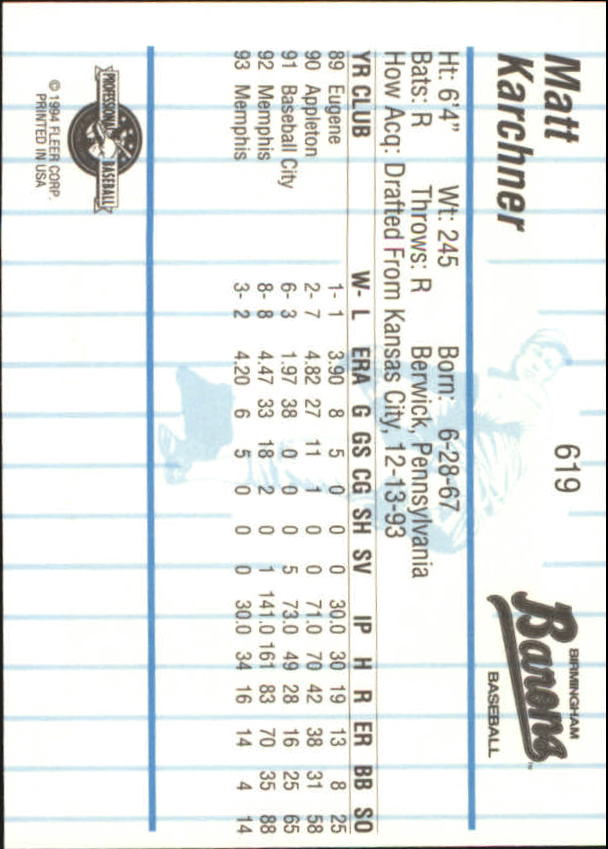 Matt
Karchner
619
BIRMINGHAM
Barons™
BASEBALL
Ht: 6'4" Wt: 245 Born: 6-28-67
Bats: R Throws: R Berwick, Pennsylvania
How Acq: Drafted From Kansas City, 12-13-93
YR CLUB W- L ERA G GS CG SH SV IP H R ER BB SO
89 Eugene 1- 1 3.90 8 5 0 0 0 30.0 30 19 13 8 25
90 Appleton 2- 7 4.82 27 11 1 0 0 71.0 70 42 38 31 58
91 Baseball City 6- 3 1.97 38 0 0 0 5 73.0 49 28 16 25 65
92 Memphis 8- 8 4.47 33 18 2 0 1 141.0 161 83 70 35 88
93 Memphis 3- 2 4.20 6 5 0 0 0 30.0 34 16 14 4 14
PROFESSIONAL BASEBALL
© 1994 FLEER CORP.
PRINTED IN USA